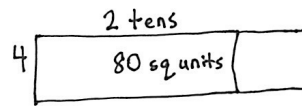 2 tens
4 80 sq units